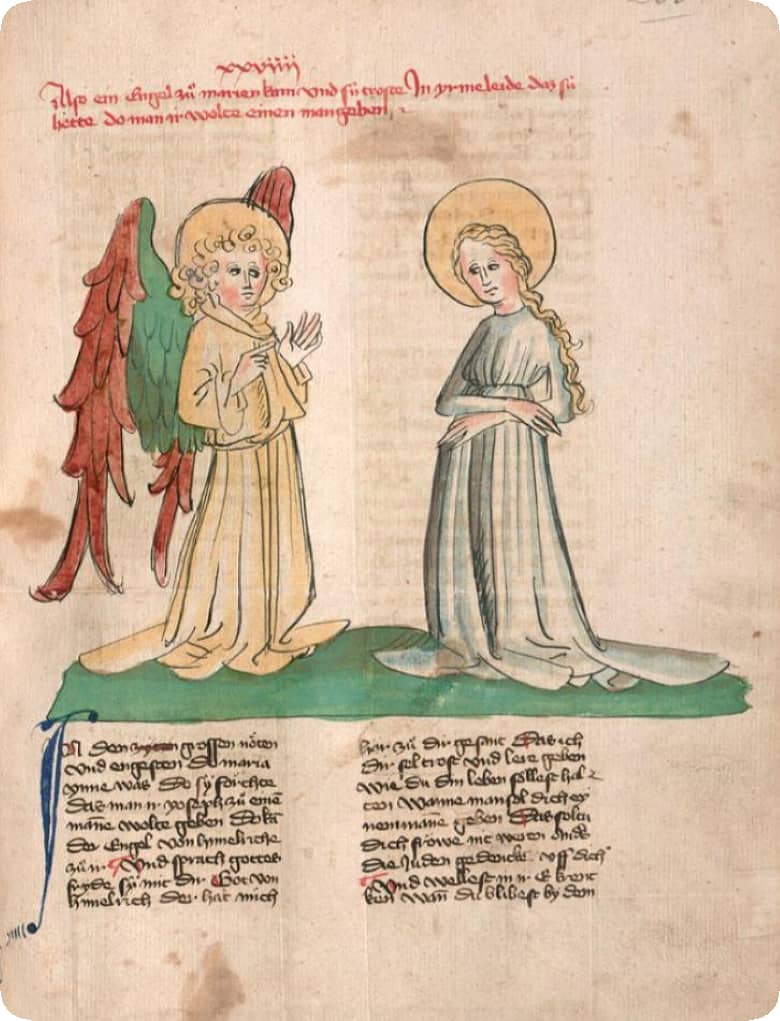 xxviiii
Also ein Engel zů marien kam vnd sü troste In yrme leide daz sü
hette do man ir wolte einen man geben
IN den grossen nöten
vnd engesten Do maria
ynne was do sy forchte
das man ir yoseph zů eine
māne wolte geben do kā
der Engel von hymelriche
zů ir Vnd sprach gottes
fryde sy mit dir Got von
himelrich der hat mich
har zů dir gesant Das ich
dir sol trost vnd lere geben
wie du din leben sollest hal
ten wanne man sol dich ey
nem manne geben Das soltu
dich frowe nit
die Juden gedencke vff dich
Vnd wellest in ir
wañ du blibest by dem